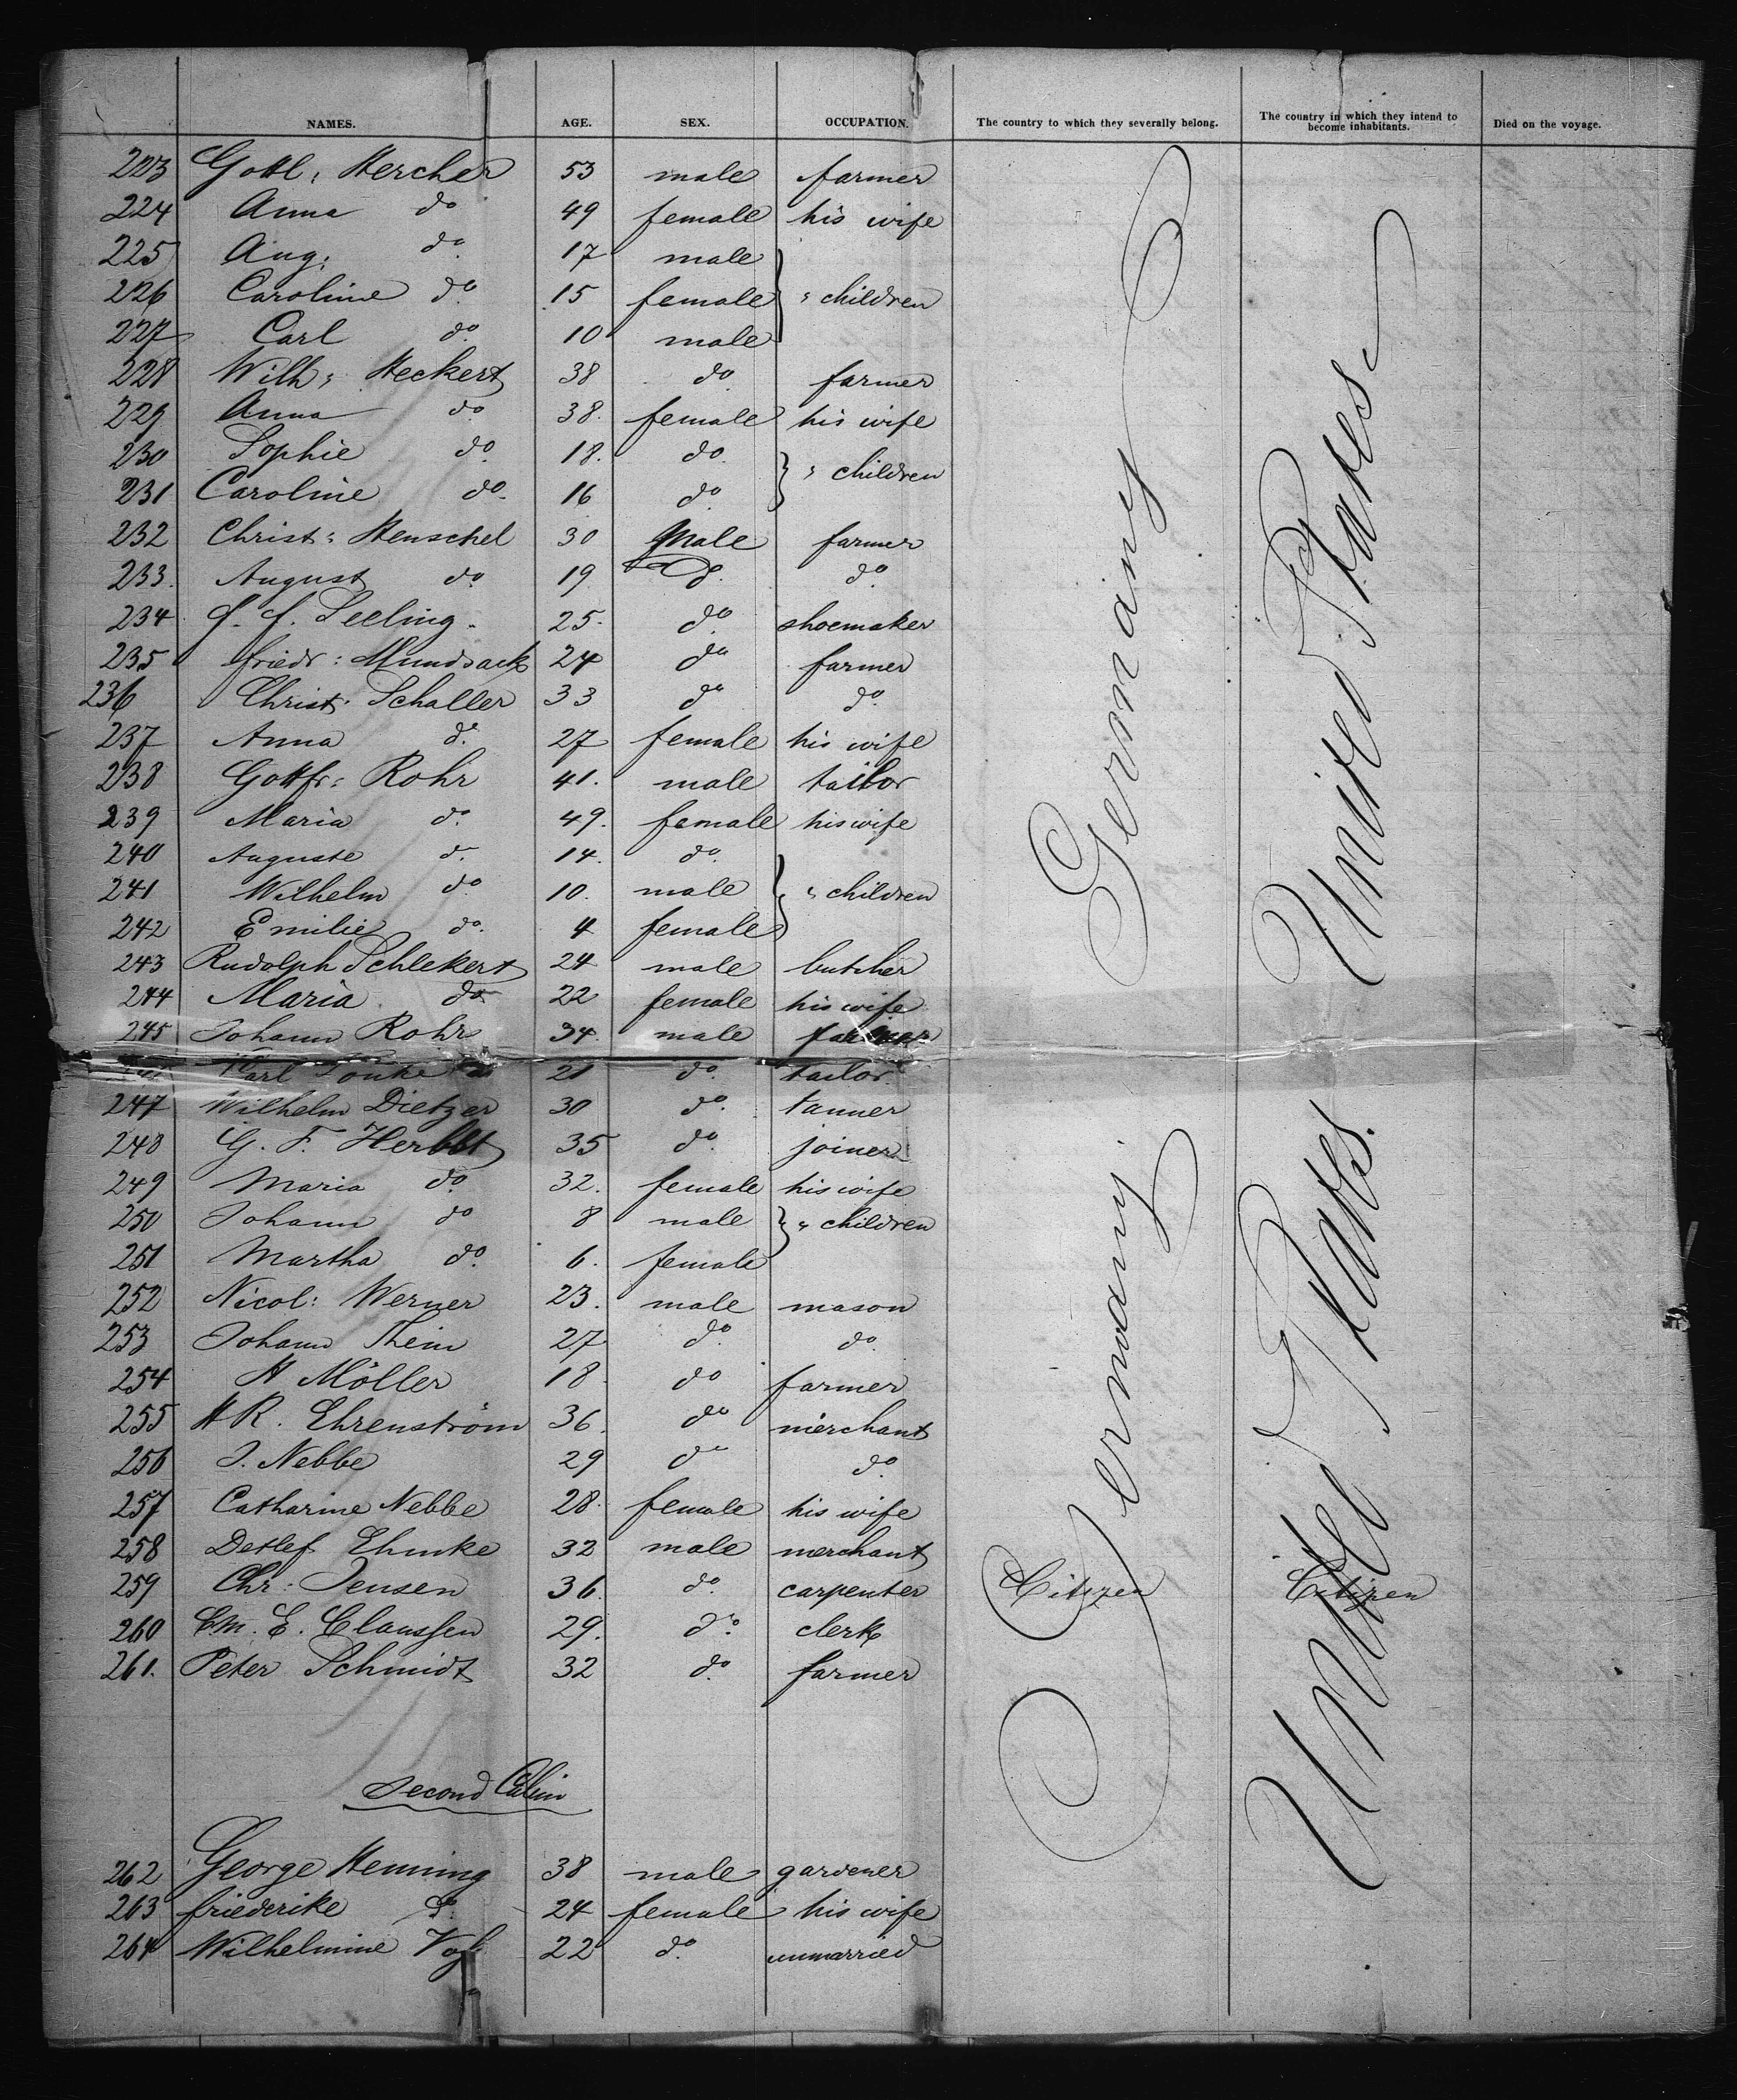 NAMES. AGE. SEX. OCCUPATION. The country to which they severally belong. The country in which they intend to become inhabitants. Died on the voyage.
223 Gottl: Hercher 53 male farmer
224 Anna do 49 female his wife
225 Aug: do 17 male
226 Caroline do. 15 female " children
227 Carl do. 10 male
228 Wilh: Heckert 38 do. farmer
229 Anna do 38. female his wife
230 Sophie do. 18. do.
" children
231 Caroline do. 16 do.
232 Christ: Henschel 30 Male farmer
233. August do. 19 do. do.
234 Seeling. 25. do. shoemaker
235 friedr: Mundsack 24 do farmer
236 Christ: Schaller 33 do do.
237 Anna do. 27 female his wife
238 Gottfr: Rohr 41. male tailor
239 Maria do. 49. female his wife
240 Auguste do. 14. do.
241 Wilhelm do 10. male " children
242 Emilie do. 4 female
243 Rudolph Schlekert 24 male butcher
244 Maria do. 22 female his wife
245 Johann Rohr 34. male farmer
Carl 21 do. tailor
247 Wilhelm Dietzer 30 do. tanner
248 G. F. Herbst 35 do. joiner
249 Maria do. 32. female his wife
250 Johann do 8 male " children
251 Martha do. 6. female
252 Nicol: Werner 23. male mason
253 Johann Thein 27 do. do.
254 H Möller 18 do farmer
255 H R. Ehrenström 36 do merchant
256 J. Nebbe 29 do do.
257 Catharine Nebbe 28. female his wife
258 Detlef Ehmke 32 male merchant
259 Chr: Jensen 36. do. carpenter Citizen Citizen
260 C.M. E. Claussen 29. do. clerk
261. Peter Schmidt 32 do. farmer
Germany
United States
Germany
United States.
Second Cabin
262 George Henning 38 male gardener
263 friederike do. 24 female his wife
264 Wilhelmine 22 do. unmarried